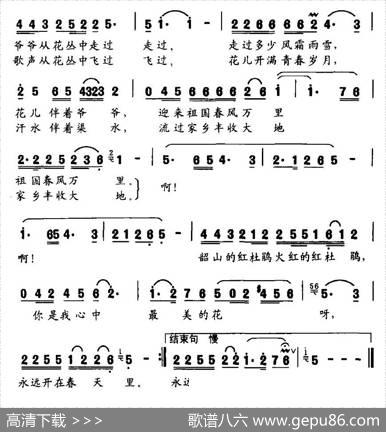 4 4 3 2 5 2 2 5· 5 1· 2 2 6 6 6 6 2 4· 3
爷爷从花丛中走过 走过, 走过多少风霜雨雪,
歌声从花丛中飞过 飞过, 花儿开满青春岁月,
2 5 6 5 4323 2 0 4 5 6 6 6 6 2 6 1 1· 7 6
花儿伴着爷爷, 迎来祖国春风万里
汗水伴着渠水, 流过家乡丰收大地
2· 2 2 5 2 3 6 2 1 - 5· 6 5 4· 3 2· 1 2 6 5
祖国春风万里。 啊!
家乡丰收大地。
1· 6 5 4· 3 2 1 2 6 5 - 4 4 4 3 2 1 2 2 5 5 1 6 1 2
啊! 韶山的红杜鹃火红的红杜鹃,
0 4 2 4 5 6 2· 1· 2 7 6 5 0 2 #4 5 6 56 5· 3
你是我心中 最美的花 呀,
结束句 慢
2 2 5 5 1 2 2 6 1 5 - 2 2 5 5 2 2 1· 2 7 6 1 5 - - -
永远开在春天里。 永远
高清下载 >>> 歌谱八六 www.gepu86.com